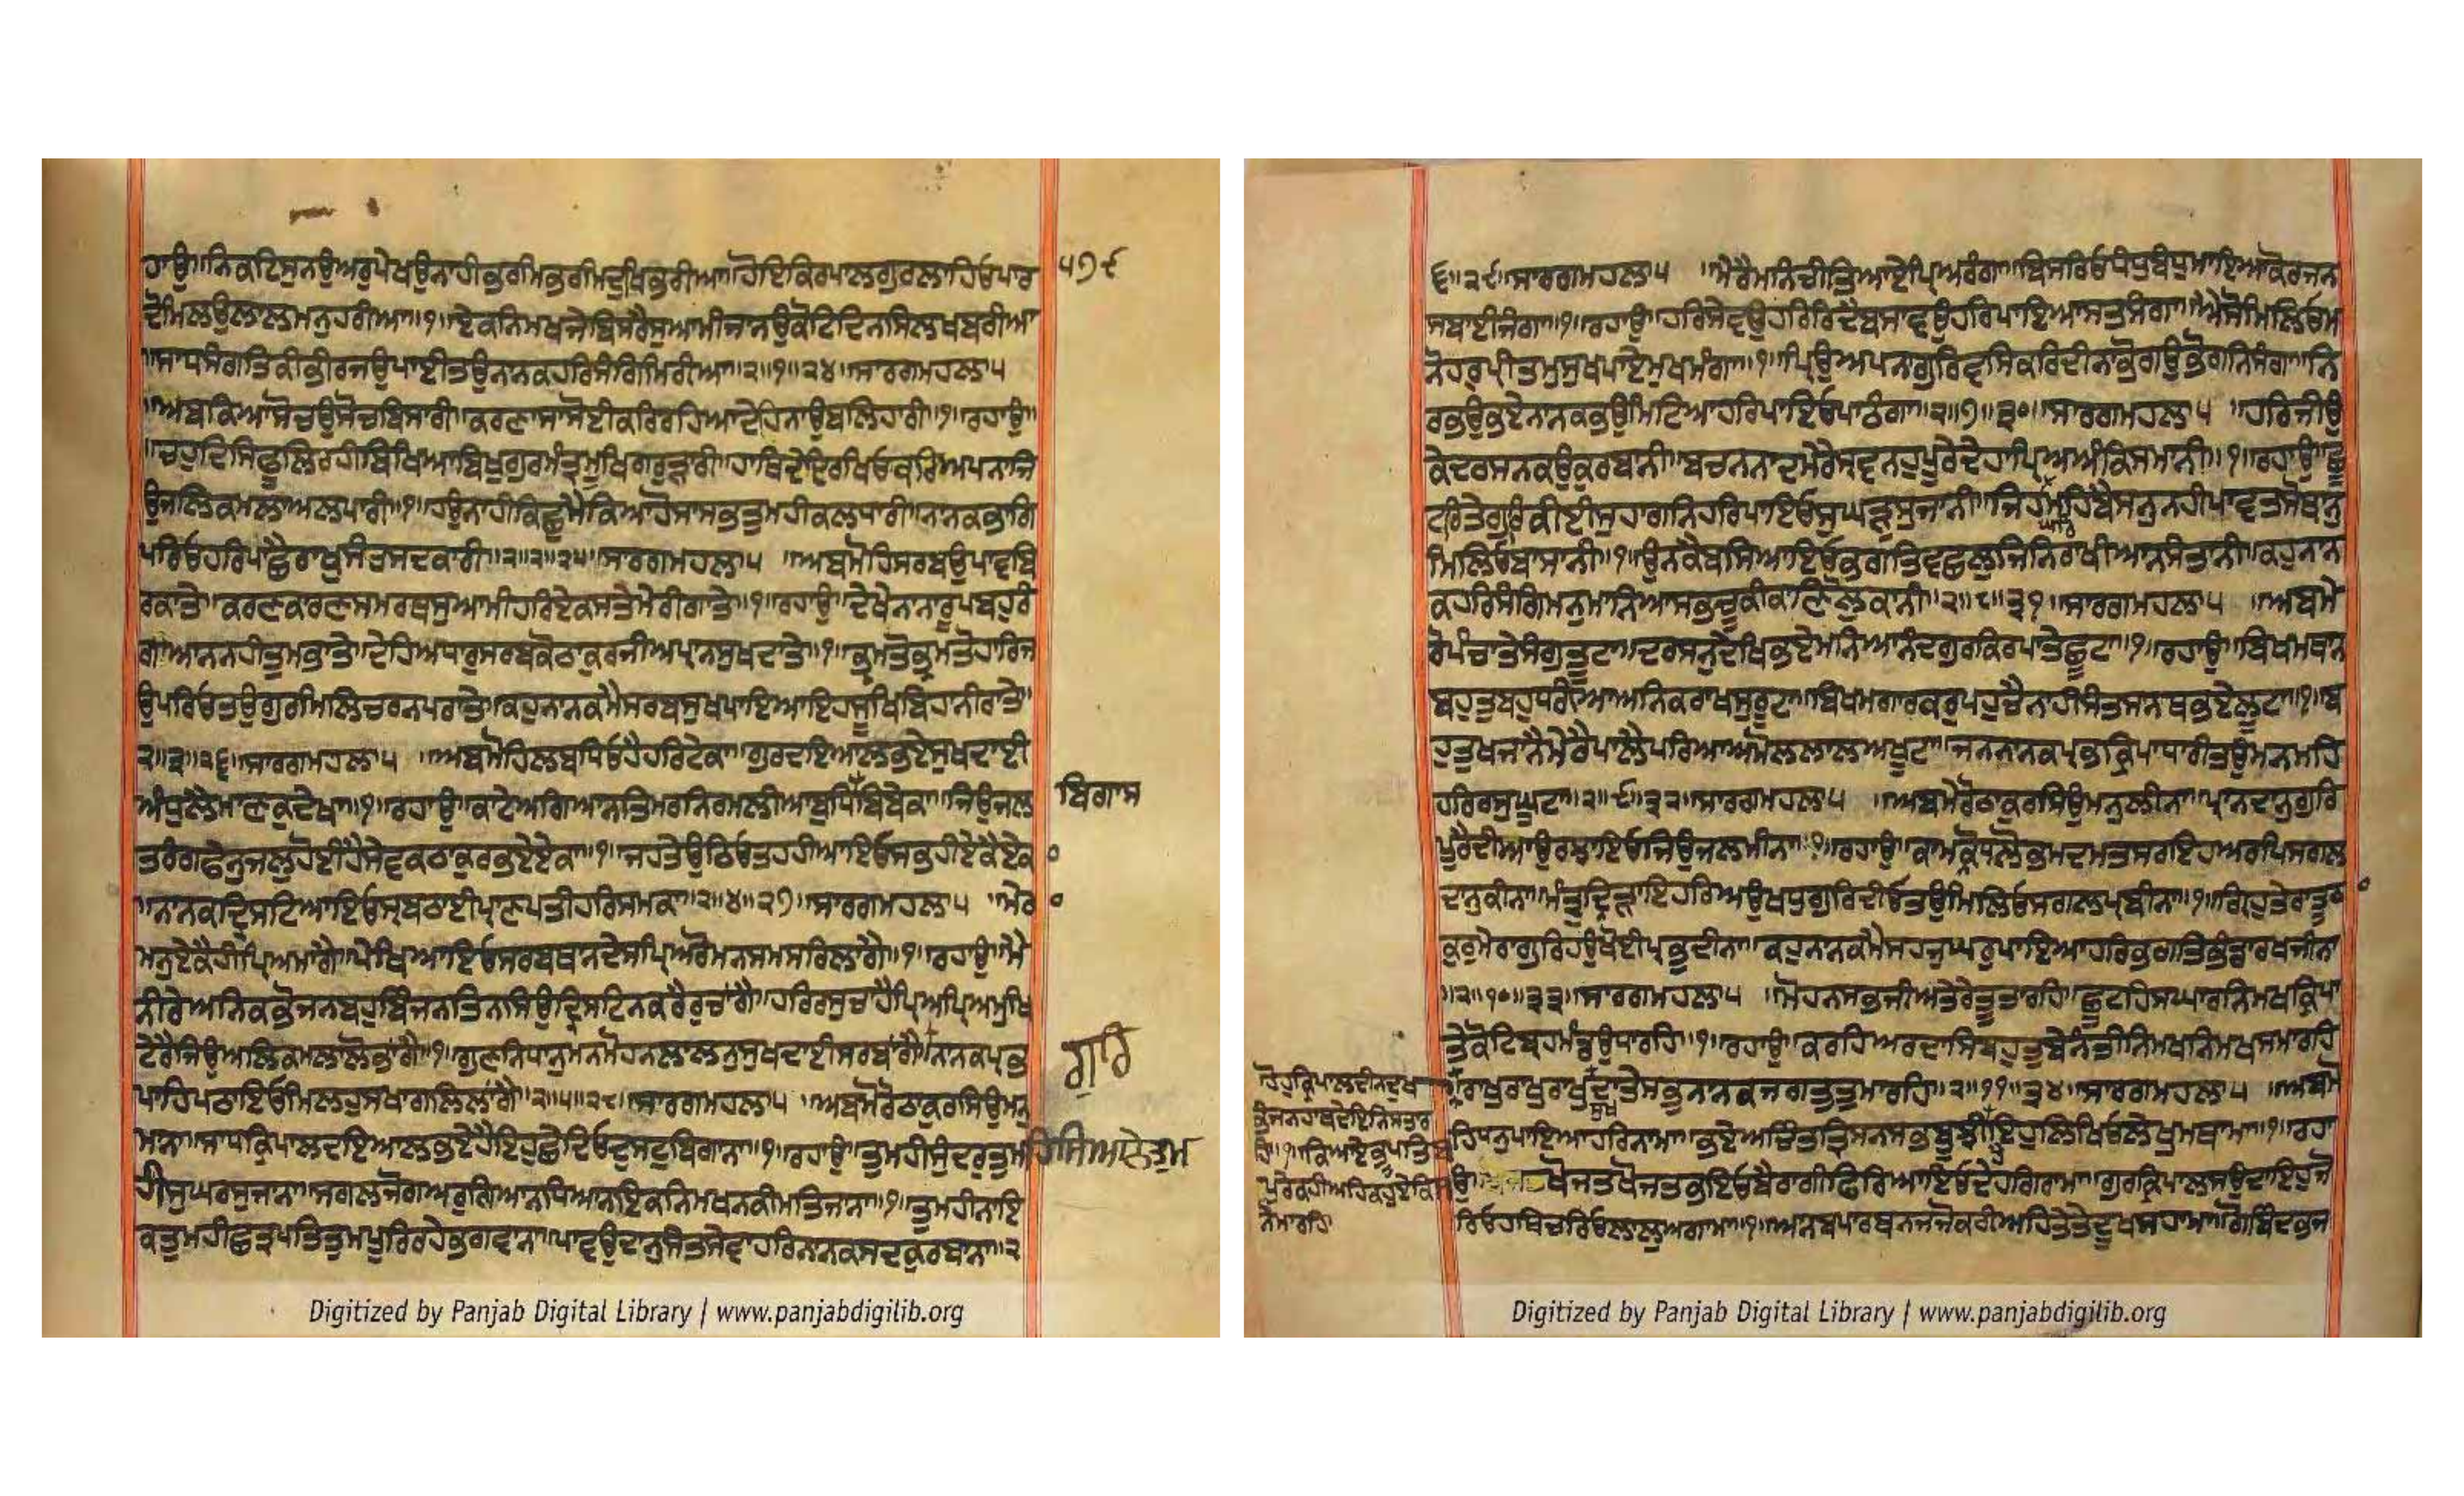 ਹਾਉ॥ਨਿਕਟਿਸੁਨਉਅਰੁਪੇਖਉਨਾਹੀਭਰਮਿਭਰਮਿਦੁਖਭਰੀਆ॥ਹੋਇਕਿਰਪਾਲਗੁਰਲਾਹਿਓਪਾਰ ੫੭੯
ਦੋਮਿਲਉਲਾਲਮਨੁਹਰੀਆ॥੧॥ਏਕਨਿਮਖਜੇਬਿਸਰੈਸੁਆਮੀਜਾਨਉਕੋਟਿਦਿਨਸਿਲਖਬਰੀਆ
॥ਸਾਧਸੰਗਤਿਕੀਭੀਰਜਉਪਾਈਤਉਨਾਨਕਹਰਿਸੰਗਿਮਿਰੀਆ॥੨॥੧॥੨੪॥ਸਾਰਗਮਹਲਾ੫
॥ਅਬਕਿਆਸੋਚਉਸੋਚਬਿਸਾਰੀ॥ਕਰਣਾਸਾਸੋਈਕਰਿਰਹਿਆਦੇਹਿਨਾਉਬਲਿਹਾਰੀ॥੧॥ਰਹਾਉ॥
॥ਚਹੁਦਿਸਿਫੂਲਿਰਹੀਬਿਖਿਆਬਿਖੁਗੁਰਮੰਤ੍ਰੁਮੁਖਿਗਰੁੜਾਰੀ॥ਹਾਥਦੇਇਰਾਖਿਓਕਰਿਅਪਨਾਜਿ
ਉਜਲਿਕਮਲਾਅਲਪਾਰੀ॥੧॥ਹਉਨਾਹੀਕਿਛੁਮੈਕਿਆਹੋਸਾਸਭਤੁਮਹੀਕਲਧਾਰੀ॥ਨਾਨਕਭਾਗਿ
ਪਰਿਓਹਰਿਪਾਛੈਰਾਖੁਸੰਤਸਦਕਾਰੀ॥੨॥੨॥੨੫॥ਸਾਰਗਮਹਲਾ੫ ॥ਅਬਮੋਹਿਸਰਬਉਪਾਵਬਿ
ਰਕਾਤੇ॥ਕਰਣਕਰਣਸਮਰਥਸੁਆਮੀਹਰਿਏਕਸਤੇਮੇਰੀਗਾਤੇ॥੧॥ਰਹਾਉ॥ਦੇਖੇਨਾਨਾਰੂਪਬਹੁਰੰ
ਗਾਆਨਨਾਹੀਤੁਮਭਾਤੇ॥ਦੇਹਿਅਧਾਰੁਸਰਬਕੋਠਾਕੁਰਜੀਅਪ੍ਰਾਨਸੁਖਦਾਤੇ॥੧॥ਭ੍ਰਮਤੋਭ੍ਰਮਤੋਹਾਰਿਜ
ਉਪਰਿਓਤਉਗੁਰਮਿਲਿਚਰਨਪਰਾਤੇ॥ਕਹੁਨਾਨਕਮੈਸਰਬਸੁਖਪਾਇਆਇਹਸੂਖਿਬਿਹਾਨੀਰਾਤੇ॥
੨॥੩॥੨੬॥ਸਾਰਗਮਹਲਾ੫ ॥ਅਬਮੋਹਿਲਬਧਿਓਹੈਹਰਿਟੇਕਾ॥ਗੁਰਦਇਆਲਭਏਸੁਖਦਾਈ
ਅੰਧੁਲੈਮਾਣਕੁਦੇਖਾ॥੧॥ਰਹਾਉ॥ਕਾਟੇਅਗਿਆਨਤਿਮਰਨਿਰਮਲੀਆਬੁਧਿਬਿਬੇਕਾ॥ਜਿਉਜਲ ਬਿਗਾਸ
ਤਰੰਗਫੇਨੁਜਲੁਹੋਈਹੈਸੇਵਕਠਾਕੁਰਭਏਏਕਾ॥੧॥ਜਹਤੇਉਠਿਓਤਹਹੀਆਇਓਸਭਹੀਏਕੈਏਕ
॥ਨਾਨਕਦ੍ਰਿਸਟਿਆਇਓਸ੍ਰਬਠਾਈਪ੍ਰਾਣਪਤੀਹਰਿਸਮਕਾ॥੨॥੪॥੨੭॥ਸਾਰਗਮਹਲਾ੫ ॥ਮੇਰਾ
ਮਨੁਏਕੈਹੀਪ੍ਰਿਅਮਾਂਗੈ॥ਪੇਖਿਆਇਓਸਰਬਥਾਨਦੇਸਪ੍ਰਿਅਰੋਮਨਸਮਸਰਿਲਾਗੈ॥੧॥ਰਹਾਉ॥ਮੈ
ਨੀਰੇਅਨਿਕਭੋਜਨਬਹੁਬਿੰਜਨਤਿਨਸਿਉਦ੍ਰਿਸਟਿਨਕਰੈਰੁਚਾਂਗੈ॥ਹਰਿਰਸੁਚਾਹੈਪ੍ਰਿਅਪ੍ਰਿਅਮੁਖਿ
ਟੇਰੈਜਿਉਅਲਿਕਮਲਾਲੋਭਾਂਗੈ॥੧॥ਗੁਣਨਿਧਾਨਮਨਮੋਹਨਲਾਲਨਸੁਖਦਾਈਸਰਬਾਂਗੈ॥ਨਾਨਕਪ੍ਰਭ ਗੁਰਿ
ਪਾਹਿਪਠਾਇਓਮਿਲਹੁਸਖਾਗਲਿਲਾਗੈ॥੨॥੫॥੨੮॥ਸਾਰਗਮਹਲਾ੫ ॥ਅਬਮੋਰੋਠਾਕੁਰਸਿਉਮਨੁ
ਮਾਨਾ॥ਸਾਧਕ੍ਰਿਪਾਲਦਇਆਲਭਏਹੈਇਹੁਛੇਦਿਓਦੁਸਟੁਬਿਗਾਨਾ॥੧॥ਰਹਾਉ॥ਤੁਮਹੀਸੁੰਦਰਤੁਮ
ਹੀਸੁਘਰਸੁਜਾਨਾ॥ਸਗਲਜੋਗਅਰੁਗਿਆਨਧਿਆਨਇਕਨਿਮਖਨਕੀਮਤਿਜਾਨਾ॥੧॥ਤੁਮਹੀਨਾਇ
ਕਤੁਮਹੀਛਤ੍ਰਪਤਿਤੁਮਪੂਰਿਰਹੇਭਗਵਾਨਾ॥ਪਾਵਉਦਾਨੁਸੰਤਸੇਵਾਹਰਿਨਾਨਕਸਦਕੁਰਬਾਨਾ॥੨
॥੬॥੨੯॥ਸਾਰਗਮਹਲਾ੫ ॥ਮੇਰੈਮਨਿਚੀਤਿਆਏਪ੍ਰਿਅਰੰਗਾ॥ਬਿਸਰਿਓਧੰਧੁਬੰਧੁਮਾਇਆਕੋਰਜਨਿ
ਸਬਾਈਜੰਗਾ॥੧॥ਰਹਾਉ॥ਹਰਿਸੇਵਉਹਰਿਰਿਦੈਬਸਾਵਉਹਰਿਪਾਇਆਸਤਸੰਗਾ॥ਐਸੋਮਿਲਿਓਮ
ਨੋਹਰੁਪ੍ਰੀਤਮੁਸੁਖਪਾਏਮੁਖਮੰਗਾ॥੧॥ਪ੍ਰਿਉਅਪਨਾਗੁਰਿਵਸਿਕਰਿਦੀਨਾਭੋਗਉਭੋਗਨਿਸੰਗਾ॥ਨਿ
ਰਭਉਭਏਨਾਨਕਭਉਮਿਟਿਆਹਰਿਪਾਇਓਪਾਠੰਗਾ॥੨॥੭॥੩੦॥ਸਾਰਗਮਹਲਾ੫ ॥ਹਰਿਜੀਉ
ਕੇਦਰਸਨਕਉਕੁਰਬਾਨੀ॥ਬਚਨਨਾਦਮੇਰੇਸ੍ਰਵਨਹੁਪੂਰੇਦੇਹਾਪ੍ਰਿਅਅੰਕਿਸਮਾਨੀ॥੧॥ਰਹਾਉ॥ਛੂ
ਟਰਿਤੇਗੁਰਿਕੀਈਸੁਹਾਗਨਿਹਰਿਪਾਇਓਸੁਘੜਸੁਜਾਨੀ॥ਜਿਹਘਰਮਹਿਬੈਸਨੁਨਹੀਪਾਵਤਸੋਥਾਨੁ
ਮਿਲਿਓਬਾਸਾਨੀ॥੧॥ਉਨਕੈਬਸਿਆਇਓਭਗਤਿਵਛਲੁਜਿਨਿਰਾਖੀਆਨਸੰਤਾਨੀ॥ਕਹੁਨਾਨ
ਕਹਰਿਸੰਗਿਮਨੁਮਾਨਿਆਸਭਚੂਕੀਕਾਣਿਲੋੁਕਾਨੀ॥੨॥੮॥੩੧॥ਸਾਰਗਮਹਲਾ੫ ॥ਅਬਮੇ
ਰੋਪੰਚਾਤੇਸੰਗੁਤੂਟਾ॥ਦਰਸਨੁਦੇਖਿਭਏਮਨਿਆਨੰਦਗੁਰਕਿਰਪਾਤੇਛੂਟਾ॥੧॥ਰਹਾਉ॥ਬਿਖਮਥਾਨ
ਬਹੁਤਬਹੁਧਰੀਆਅਨਿਕਰਾਖਸੂਰੂਟਾ॥ਬਿਖਮਗਾਰਕਰੁਪਹੁਚੈਨਾਹੀਸੰਤਸਾਨਥਭਏਲੂਟਾ॥੧॥ਬ
ਹੁਤੁਖਜਾਨੈਮੇਰੈਪਾਲੈਪਰਿਆਅਮੋਲਲਾਲਅਖੂਟਾ॥ਜਨਨਾਨਕਪ੍ਰਭਿਕ੍ਰਿਪਾਧਾਰੀਤਉਮਨਮਹਿ
ਹਰਿਰਸੁਘੂਟਾ॥੨॥੯॥੩੨॥ਸਾਰਗਮਹਲਾ੫ ॥ਅਬਮੇਰੋਠਾਕੁਰਸਿਉਮਨੁਲੀਨਾ॥ਪ੍ਰਾਨਦਾਨੁਗੁਰਿ
ਪੂਰੈਦੀਆਉਰਝਾਇਓਜਿਉਜਲਮੀਨਾ॥੧॥ਰਹਾਉ॥ਕਾਮਕ੍ਰੋਧਲੋਭਮਦਮਤਸਰਇਹਅਰਪਿਸਗਲ
ਦਾਨੁਕੀਨਾ॥ਮੰਤ੍ਰੁਦ੍ਰਿੜਾਇਹਰਿਅਉਖਧੁਗੁਰਿਦੀਓਤਉਮਿਲਿਓਸਗਲਪ੍ਰਬੀਨਾ॥੧॥ਗ੍ਰਿਹੁਤੇਰਾਤੂਠਾ
ਕੁਰੁਮੇਰਾਗੁਰਿਹਉਖੋਈਪ੍ਰਭੁਦੀਨਾ॥ਕਹੁਨਾਨਕਮੈਸਹਜਘਰੁਪਾਇਆਹਰਿਭਗਤਿਭੰਡਾਰਖਜੀਨਾ
॥੨॥੧੦॥੩੩॥ਸਾਰਗਮਹਲਾ੫ ॥ਮੋਹਨਸਭਜੀਅਤੇਰੇਤੂਤਾਰਹਿ॥ਛੂਟਹਿਸੰਘਾਰਨਿਮਖਕ੍ਰਿਪਾ
ਤੇਕੋਟਿਬ੍ਰਹਮੰਡਉਧਾਰਹਿ॥੧॥ਰਹਾਉ॥ਕਰਹਿਅਰਦਾਸਿਬਹੁਤੁਬੇਨੰਤੀਨਿਮਖਨਿਮਖਸਮਾਰਹਿ
॥ਰਾਖੁਰਾਖੁਰਾਖੁਸੁਖਦਾਤੇਸਭੁਨਾਨਕਜਗਤੁਤੁਮਾਰਹਿ॥੨॥੧੧॥੩੪॥ਸਾਰਗਮਹਲਾ੫ ॥ਅਬਮੋ
ਹਿਧਨੁਪਾਇਆਹਰਿਨਾਮਾ॥ਭਏਅਚਿੰਤਤ੍ਰਿਸਨਸਭਬੁਝੀਇਹੁਲਿਖਿਓਲੇਖੁਮਥਾਮਾ॥੧॥ਰਹਾ
ਉ॥ਖੋਜਤਖੋਜਤਭਇਓਬੈਰਾਗੀਫਿਰਿਆਇਓਦੇਹਗਿਰਾਮਾ॥ਗੁਰਕ੍ਰਿਪਾਲਸਉਦਾਇਹੁਜੋ
ਰਿਓਹਥਿਚਰਿਓਲਾਲੁਅਗਾਮਾ॥੧॥ਆਨਬਪਾਰਬਨਜਜੋਕਰੀਅਹਿਤੇਤੇਦੂਖਸਹਾਮਾ॥ਗੋਬਿੰਦਭਜ
ਹੋਹੁਕ੍ਰਿਪਾਲਦੀਨਦੁਖ
ਭੰਜਨਹਾਥਦੇਇਨਿਸਤਾਰ
ਹਿ॥੧॥ਕਿਆਏਭੂਪਤਿਬ
ਪੁਰੇਕਹੀਅਹਿਕਹੁਏਕਿਸ
ਨੋਮਾਰਹਿ